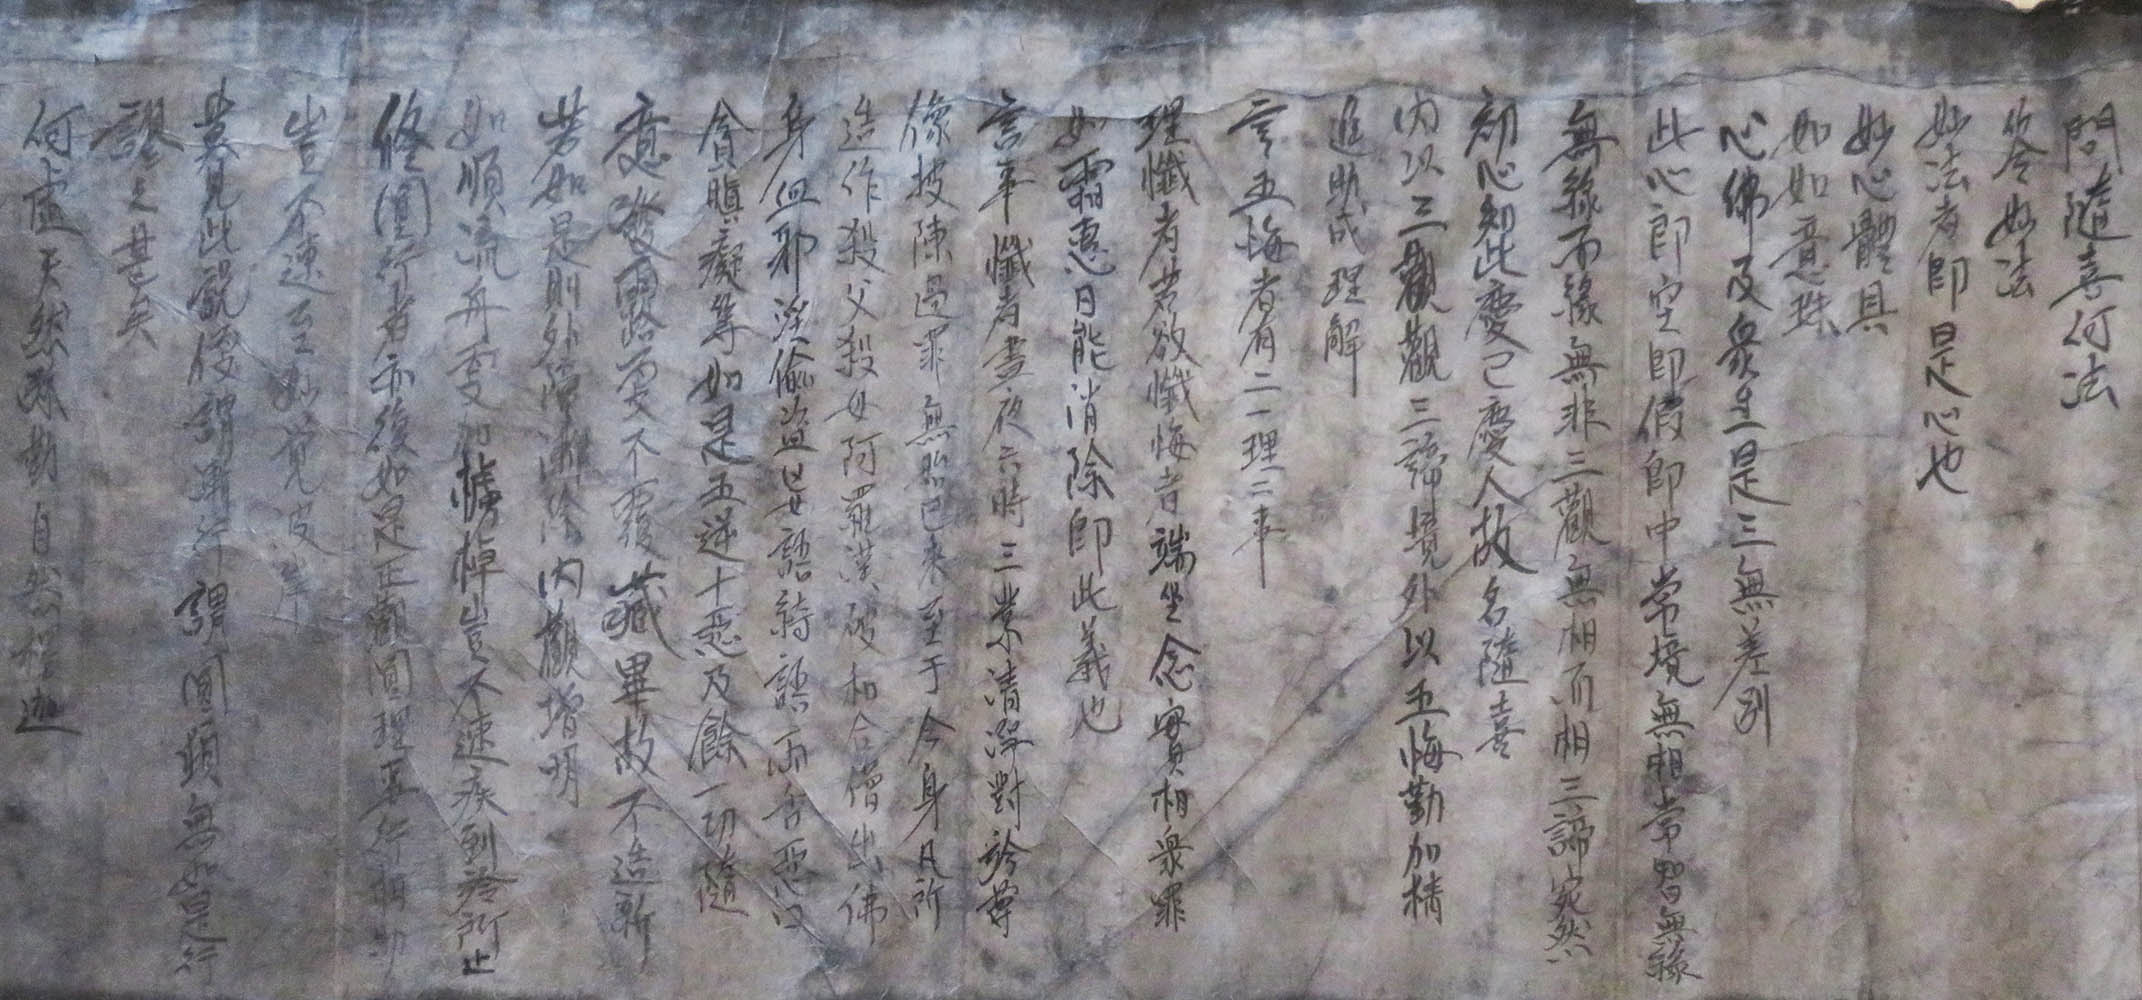 問隨喜何法
答今妙法
妙法者即是心也
妙心體具
如如意珠
心佛及衆生是三無差別
此心即空即假即中常境無相常智無緣
無緣而緣無非三觀無相而相三諦宛然
初心知此慶己慶人故名隨喜
內以三觀觀三諦境外以五悔勤加精
進助成理解
言五悔者有二一理二事
理懺者若欲懺悔者端坐念實相衆罪
如霜惠日能消除即此義也
言事懺者晝夜六時三業清淨對於尊
像披陳過罪無始已來至于今身凡所
造作殺父殺母阿羅漢破和合僧出佛
身血邪淫偷盜妄語綺語兩舌惡口
貪瞋癡等如是五逆十惡及餘一切隨
意發露更不覆藏畢故不造新
若如是則外障漸除內觀增明
如順流舟更加櫓棹豈不速疾到於所止
修圓行者亦復如是正觀圓理事行相助
豈不速至妙覺彼岸
莫見此說便謂漸行謂圓頓無如是行
謬之甚矣
何處天然彌勒自然釋迦